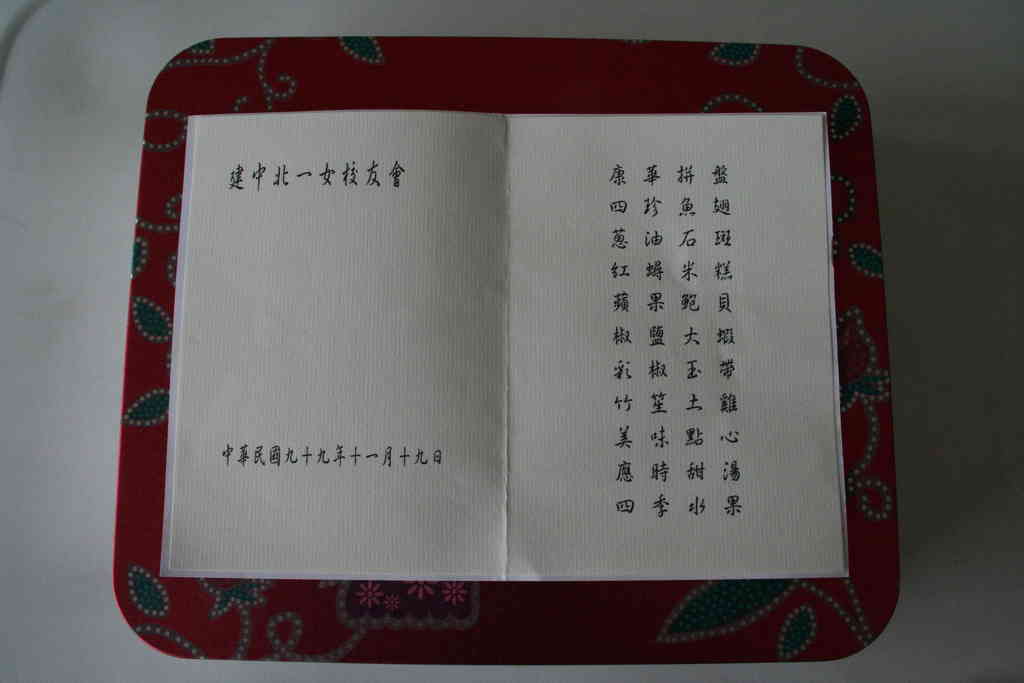 建中北一女校友會
中華民國九十九年十一月十九日
康華拼盤
四珍魚翅
蔥油石斑
紅蟳米糕
蘋果鮑貝
椒鹽大蝦
彩椒玉帶
竹笙土雞
美味點心
應時甜湯
四季水果